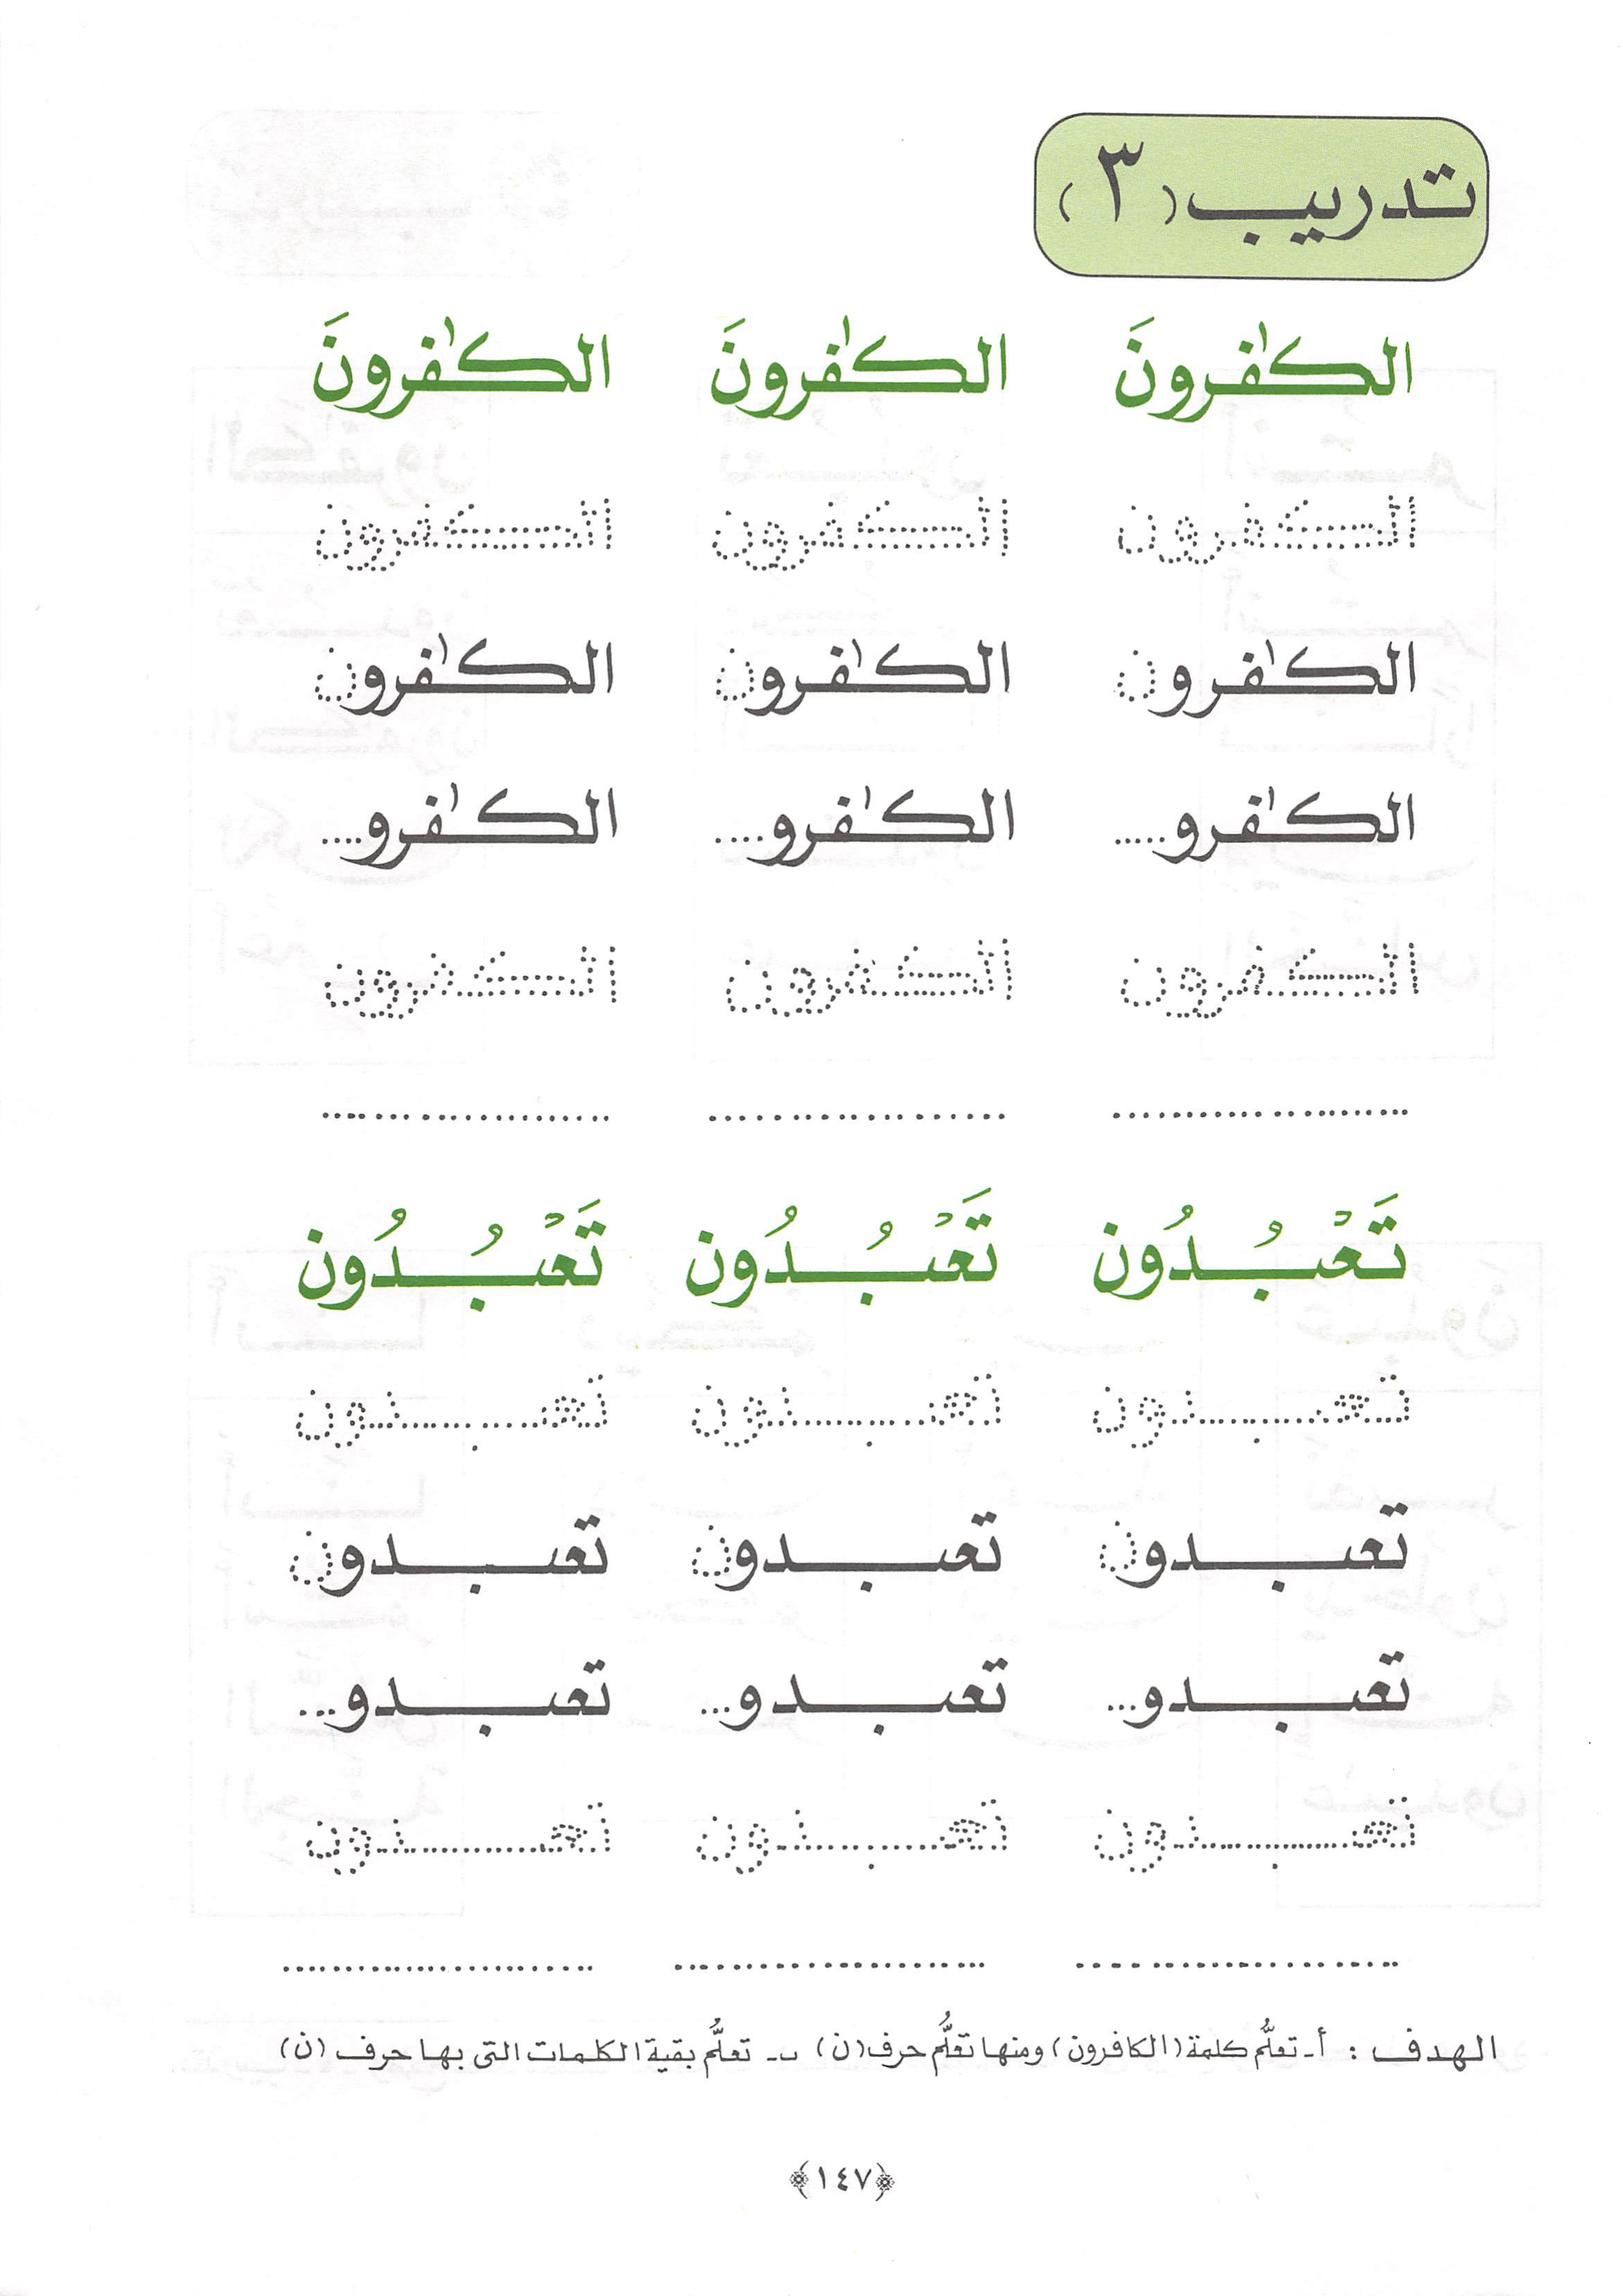 تدريب (٣)
الكٰفرونَ الكٰفرونَ الكٰفرونَ
الكفرون الكفرون الكفرون
الكٰفرون الكٰفرون الكٰفرون
الكٰفرو..... الكٰفرو..... الكٰفرو....
الكفرون الكفرون الكفرون
تَعْبُدُون تَعْبُدُون تَعْبُدُون
تعبدون تعبدون تعبدون
تعبدون تعبدون تعبدون
تعبدو... تعبدو... تعبدو...
تعبدون تعبدون تعبدون
الهدف : أ- تعلُّم كلمة (الكافرون) ومنها تعلُّم حرف (ن) ب- تعلُّم بقية الكلمات التى بها حرف (ن)
﴿١٤٧﴾